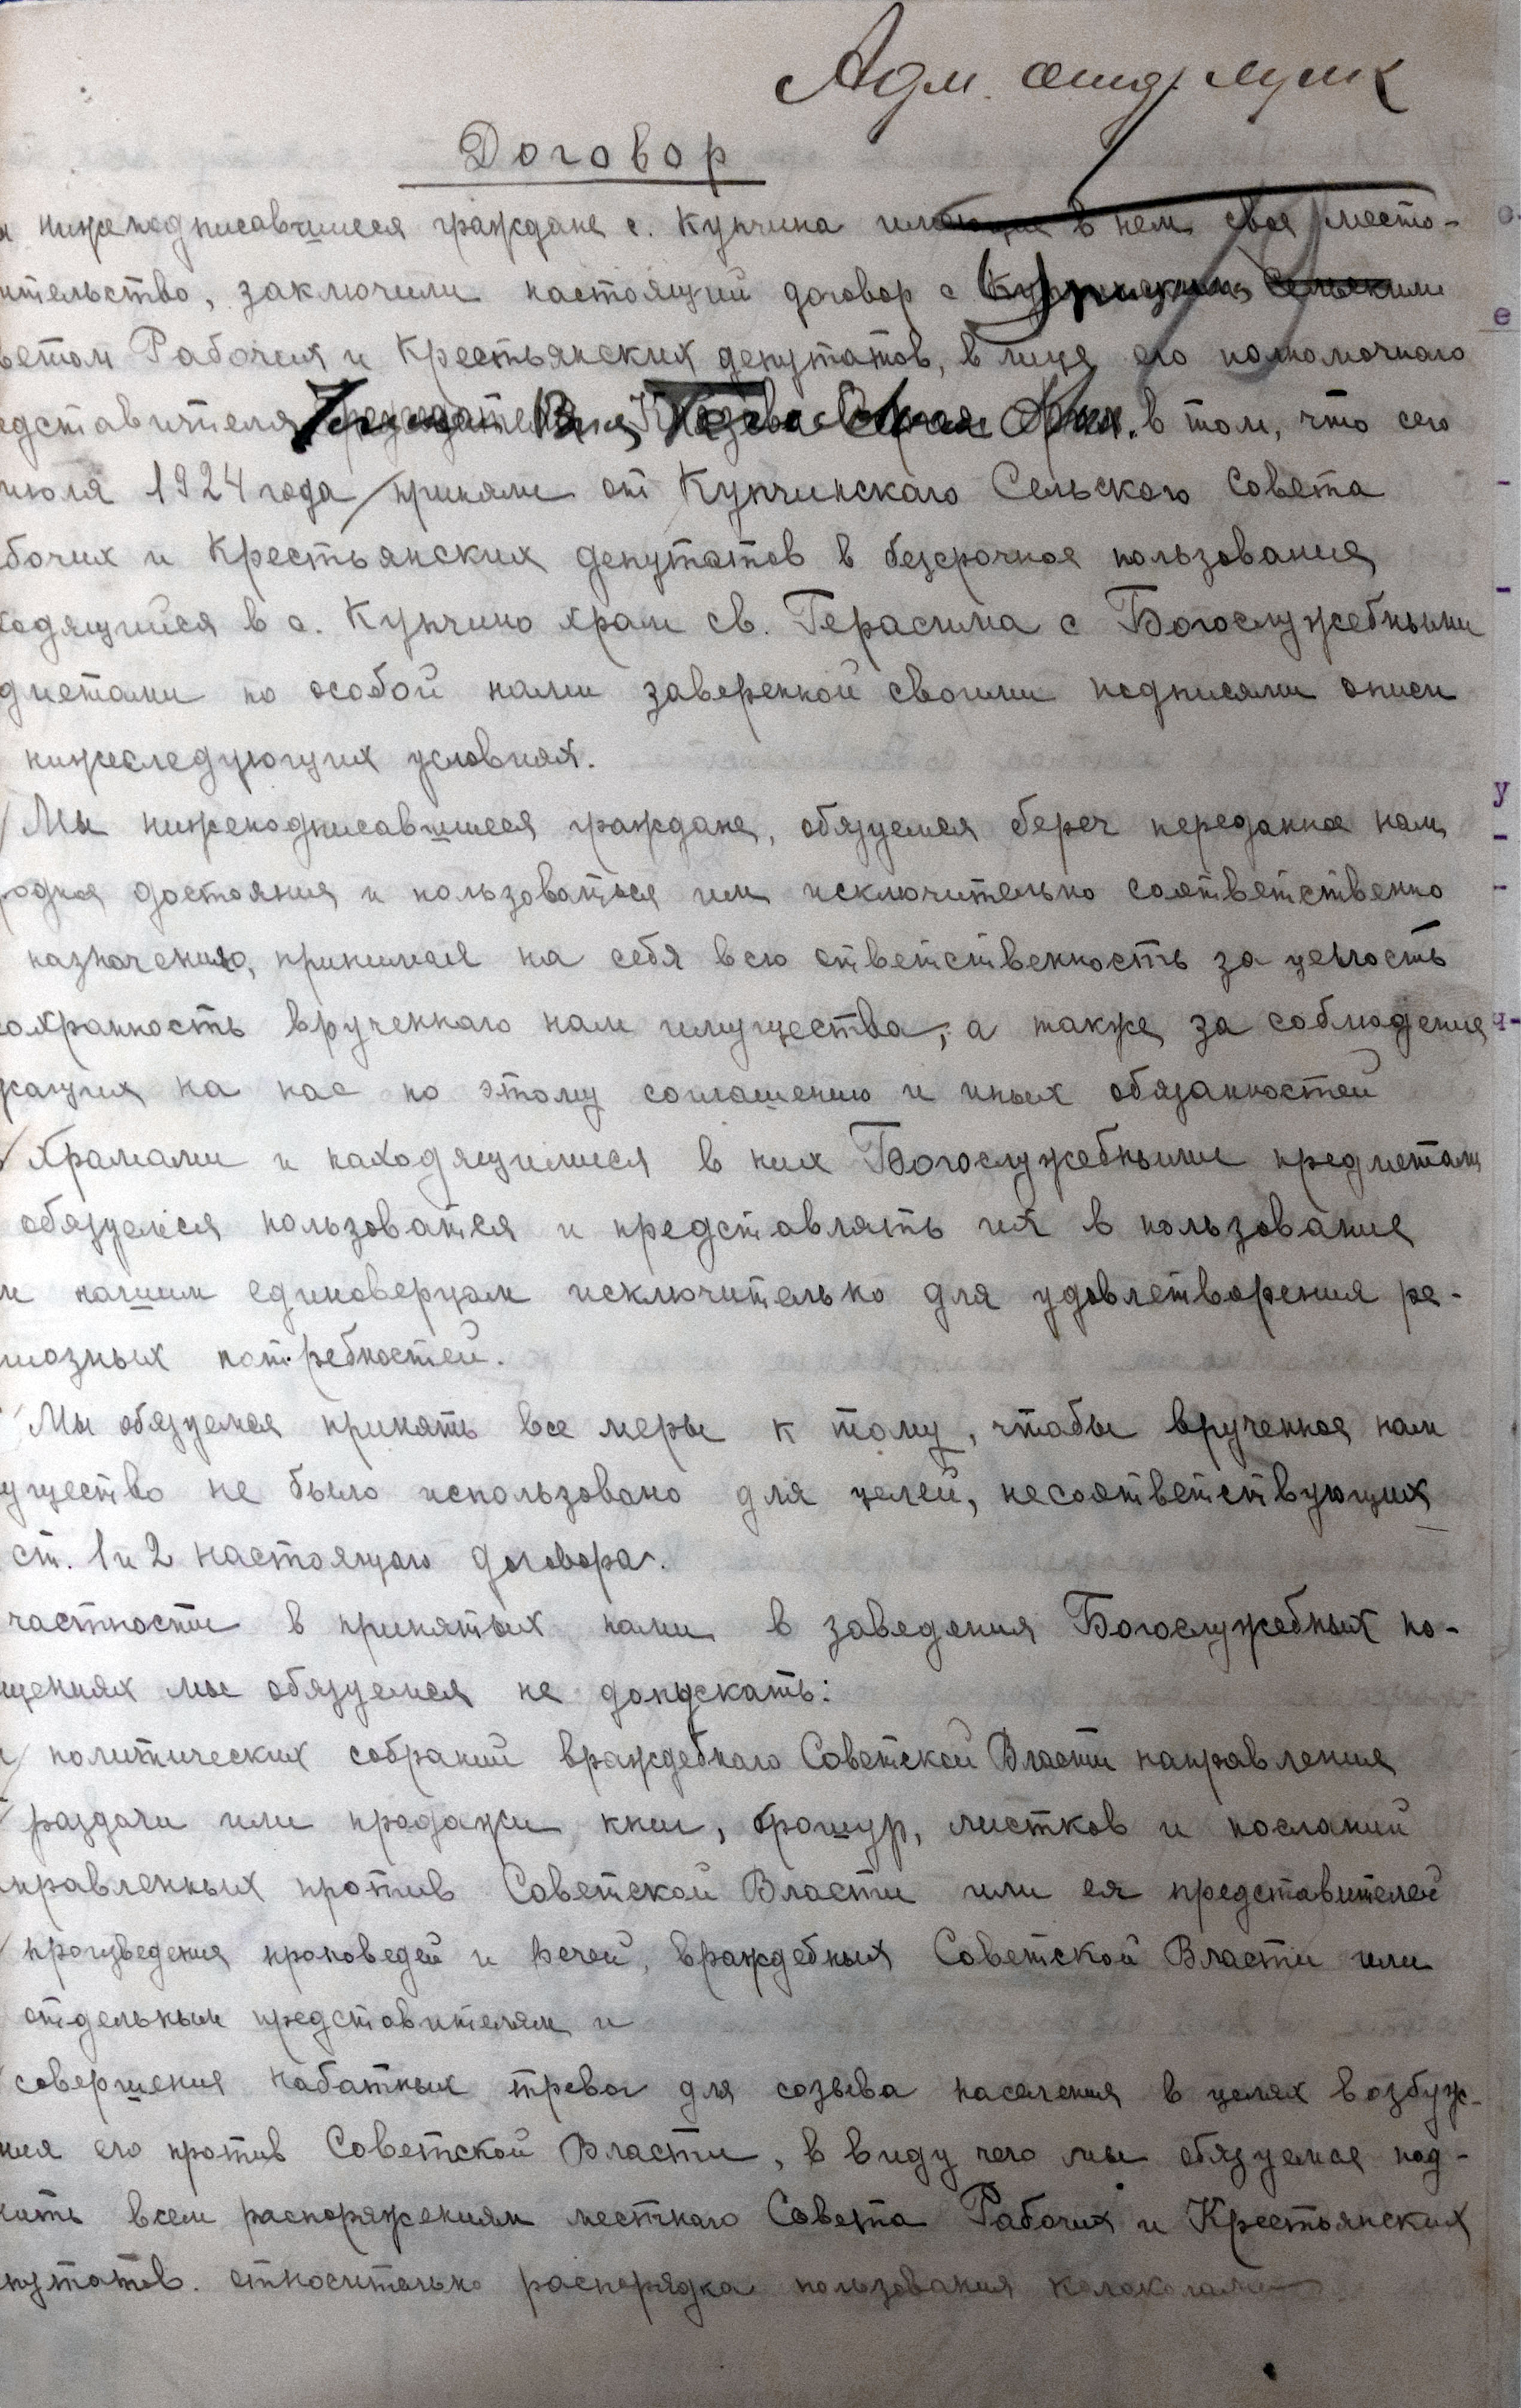 Адм. отд.
Договор
нижеподписавшиеся граждане с. Купчина имеющие в нем свое место-
ительство, заключили настоящий договор с
ветом Рабочих и Крестьянских депутатов, в лице его полномочнаго
едставителя в том, что сего
июля 1924 года приняли от Купчинскаго Сельского Совета
бочих и Крестьянских депутатов в безсрочное пользование
ходящийся в с. Купчино храм св. Герасима с Богослужебными
дметами по особой нами заверенной своими подписями описи
нижеследующих условиях.
Мы нижеподписавшиеся граждане, обязуемся береч переданное нам
родное достояние и пользоваться им исключительно соответственно
назначению, принимая на себя всю ответственность за целость
сохранность врученнаго нам имущества, а также за соблюдение
жащих на нас по этому соглашению и иных обязанностей
Храмами и находящимися в них Богослужебными предметами
обязуемся пользоватся и представлять их в пользование
м нашим единоверцам исключительно для удовлетворения ре-
иозных потребностей.
Мы обязуемся принять все меры к тому, чтобы врученное нам
ущество не было использовано для целей, несоответствующих
ст. 1 и 2 настоящаго договора.
частности в принятых нами в заведения Богослужебных по-
щениях мы обязуемся не допускать:
политических собраний враждебнаго Советской Власти направления
раздачи или продажи книг, брошур, листков и посланий
правленных против Советской Власти или ея представителей
произведения проповедей и речей, враждебных Советской Власти или
отдельным представителям и
совершения набатных тревог для созыва населения в целях возбуж-
ния его против Советской Власти, в виду чего мы обязуемся под-
нить всем распоряжениям местнаго Совета Рабочих и Крестьянских
путатов. относительно распорядка пользования колокольнями